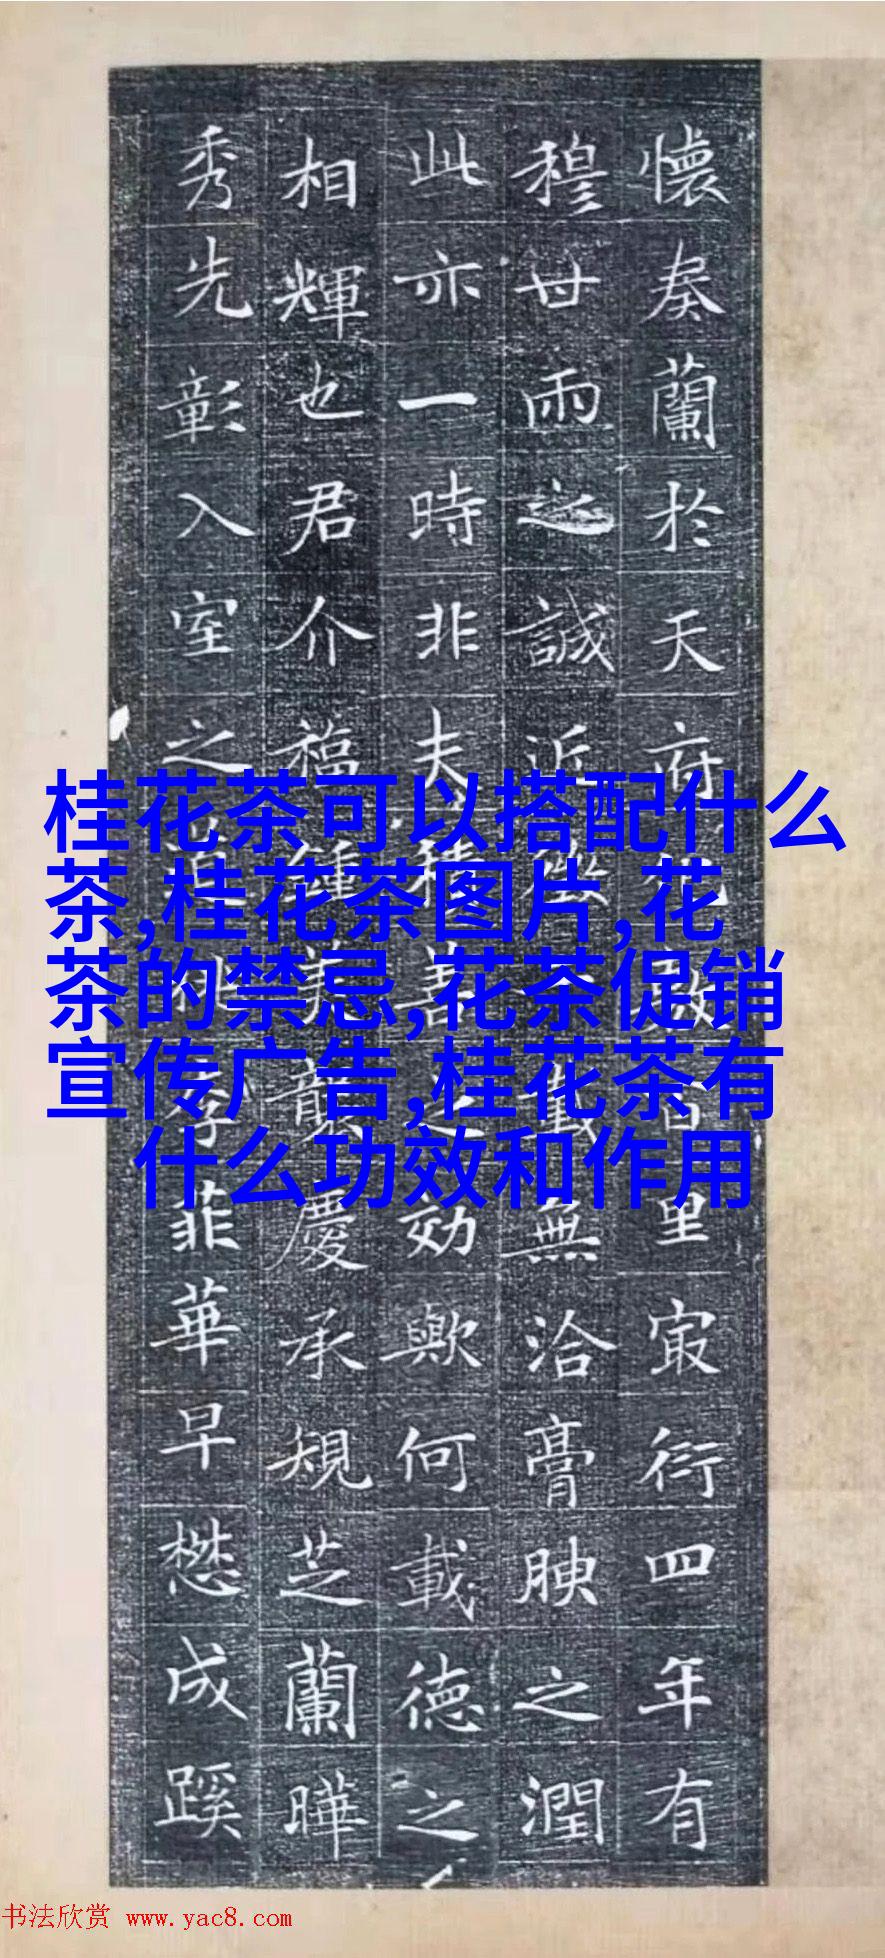 懷奏蘭於天府百里冣衍四年有
穆世雨之誠近載無洽膏腴之潤
此亦一時非夫積善之効歟何載德之
相輝也君介福鍾美襲慶承規芝蘭曄
秀先彰入室之菲華早懋成蹊
桂花茶可以搭配什么
茶,桂花茶图片,花
茶的禁忌,花茶促销
宣传广告,桂花茶有
什么功效和作用
书法欣赏 www.yac8.com